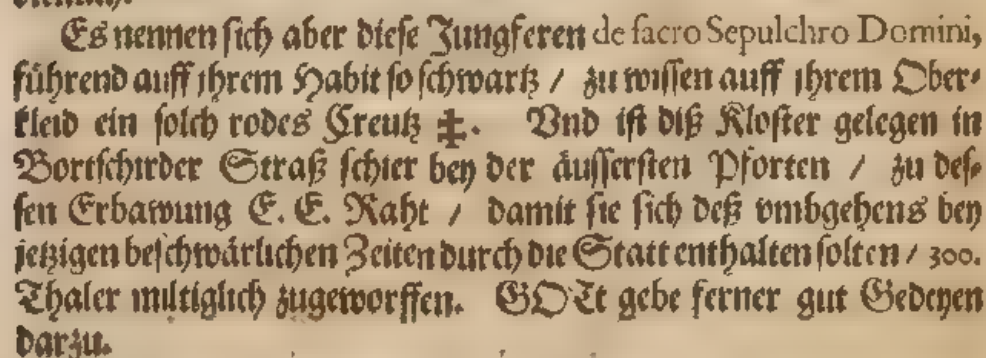 Es nennen sich aber diese Jungferen de sacro Sepulchro Domini,
führend auff ihrem Habit so schwartz / zu wissen auff ihrem Ober-
kleid ein solch rodes Creutz ‡. Vnd ist diß Kloster gelegen in
Bortschirder Straß schier bey der äussersten Pforten / zu des-
sen Erbawung E. E. Raht / damit sie sich deß vmbgehens bey
jetzigen beschwärlichen Zeiten durch die Statt enthalten solten / 300.
Thaler miltiglich zugeworffen. GOTt gebe ferner gut Gedeyen
darzu.